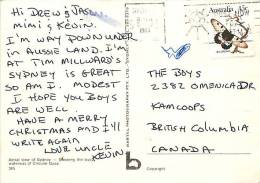 Hi Drew & Jason.
Mimi & Kevin.
I'm way down under
in Aussie Land. I'm
at Tim Millward's
Sydney is great
so am I. Modest
I hope you boys
are well.
Have a merry
Christmas and I'll
write again
Love Uncle
Kevin
Aerial view of Sydney
waterfront of Circular Quay.
Australia
The Boys
2382 Omenica Dr
Kamloops
British Columbia
Canada
Copyright